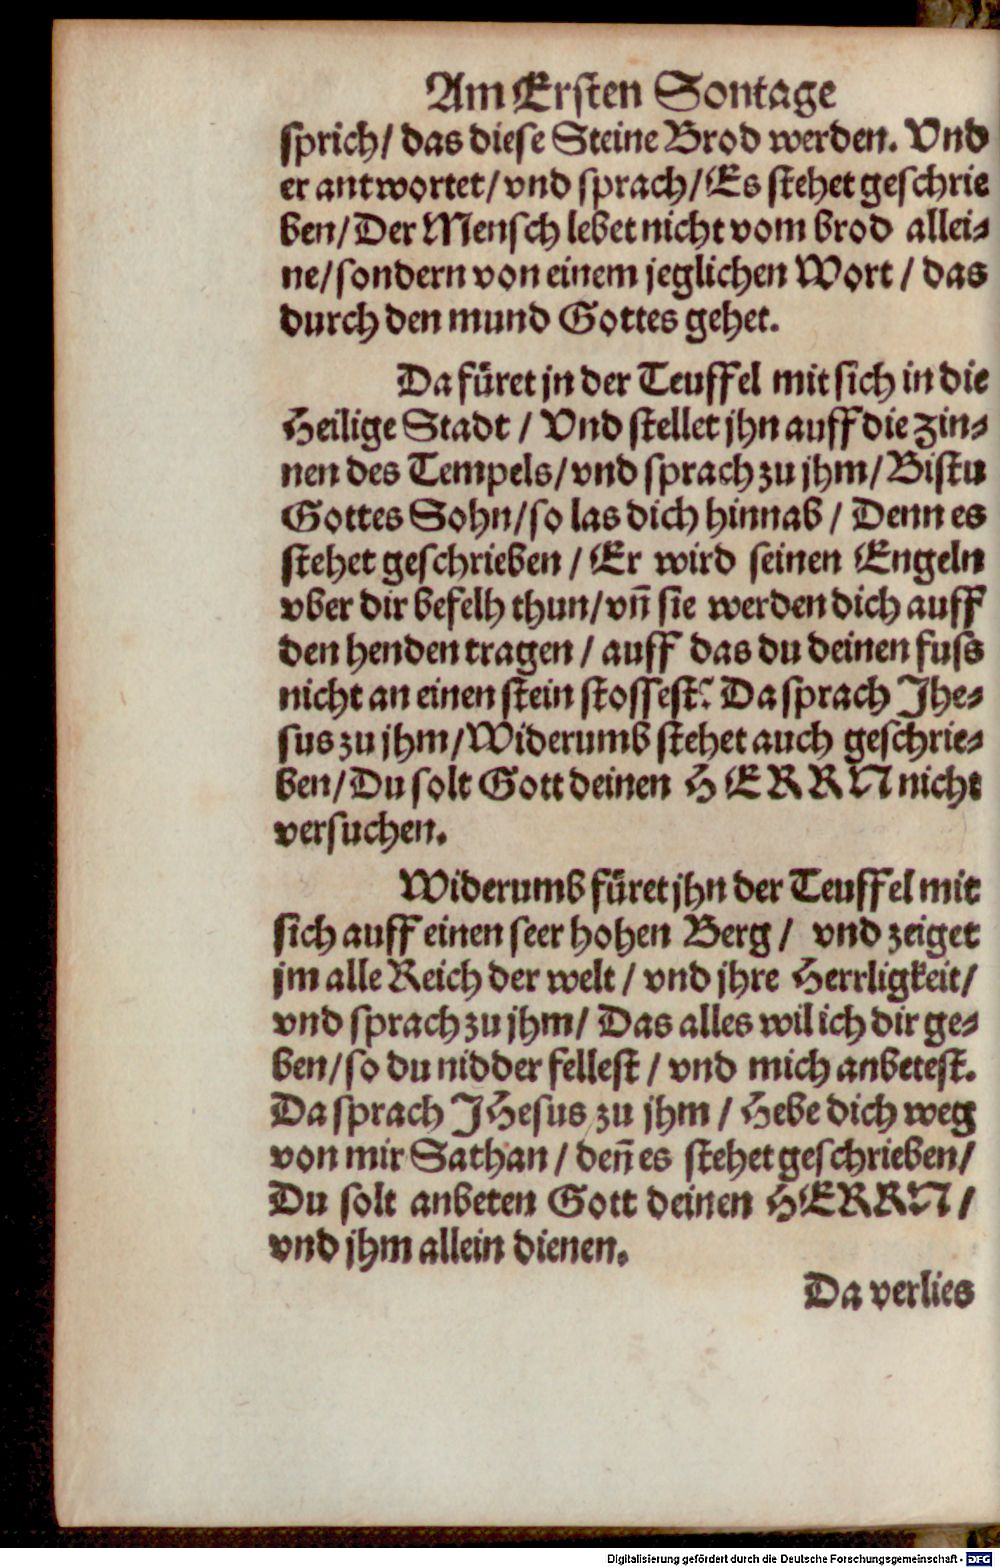 Am Ersten Sontage
sprich/ das diese Steine Brod werden. Vnd
er antwortet/ vnd sprach/ Es stehet geschrie
ben/ Der Mensch lebet nicht vom brod allei⸗
ne/ sondern von einem jeglichen Wort / das
durch den mund Gottes gehet.
Da füret jn der Teuffel mit sich in die
Heilige Stadt / Vnd stellet jhn auff die zin⸗
nen des Tempels/ vnd sprach zu jhm/ Bistu
Gottes Sohn/ so las dich hinnab / Denn es
stehet geschrieben / Er wird seinen Engeln
vber dir befelh thun/ vn̄ sie werden dich auff
den henden tragen / auff das du deinen fuss
nicht an einen stein stossest. Da sprach Jhe⸗
sus zu jhm/ Widerumb stehet auch geschrie⸗
ben/ Du solt Gott deinen HERRN nicht
versuchen.
Widerumb füret jhn der Teuffel mit
sich auff einen seer hohen Berg / vnd zeiget
jm alle Reich der welt / vnd jhre Herrligkeit/
vnd sprach zu jhm/ Das alles wil ich dir ge⸗
ben/ so du nidder fellest / vnd mich anbetest.
Da sprach JHesus zu jhm / Hebe dich weg
von mir Sathan / den̄ es stehet geschrieben/
Du solt anbeten Gott deinen HERRN /
vnd jhm allein dienen.
Da verlies
Digitalisierung gefördert durch die Deutsche Forschungsgemeinschaft - DFG